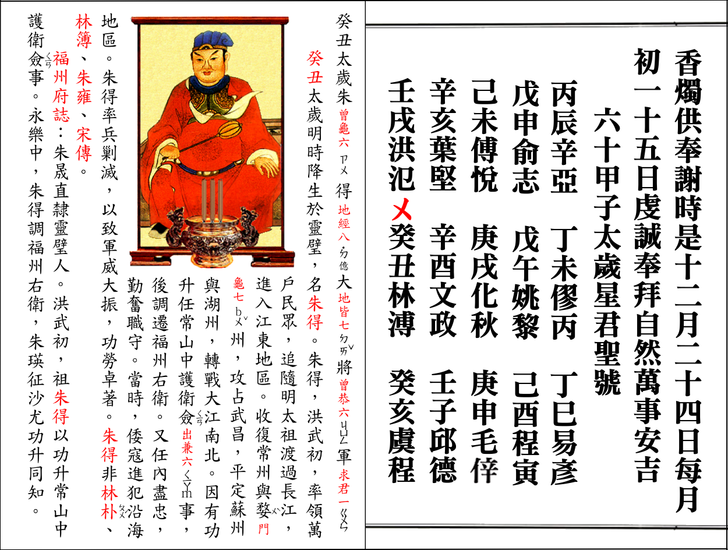 香燭供奉謝時是十二月二十四日每月
初一十五日虔誠奉拜自然萬事安吉
六十甲子太歲星君聖號
丙辰辛亞 丁未僇丙 丁巳易彥
戊申俞志 戊午姚黎 己酉程寅
己未傅悅 庚戌化秋 庚申毛倖
辛亥葉堅 辛酉文政 壬子邱德
壬戌洪氾ㄨ癸丑林溥 癸亥虞程
癸丑太歲朱曾龜六ㄗㄨ得地經八ㄉ億大地皆七ㄉㄞˇ將曾恭六軍求君一
癸丑太歲明時降生於靈璧，名朱得。朱得，洪武初，率領萬
戶民眾，追隨明太祖渡過長江，
進入江東地區。收復常州與婺ㄨˋ門
龜七州，攻占武昌，平定蘇州
與湖州，轉戰大江南北。因有功
升任常山中護衛僉出兼六事，
後調遷福州右衛。又任內盡忠，
勤奮職守。當時，倭寇進犯沿海
地區。朱得率兵剿滅，以致軍威大振，功勞卓著。朱得非林朴、
林簿、朱雍、宋傳。
福州府誌：朱晟直隸靈璧人。洪武初，祖朱得以功升常山中
護衛僉事。永樂中，朱得調福州右衛，朱瑛征沙尤功升同知。